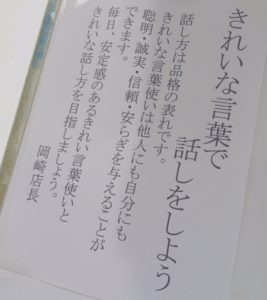 きれいな言葉で
話しをしよう
話し方は品格の表れです。
きれいな言葉使いは他人にも自分にも
聡明・誠実・信頼・安らぎを与えることが
できます。
毎日、安定感のあるきれい言葉使いと
きれいな話し方を目指しましょう。
岡崎店長